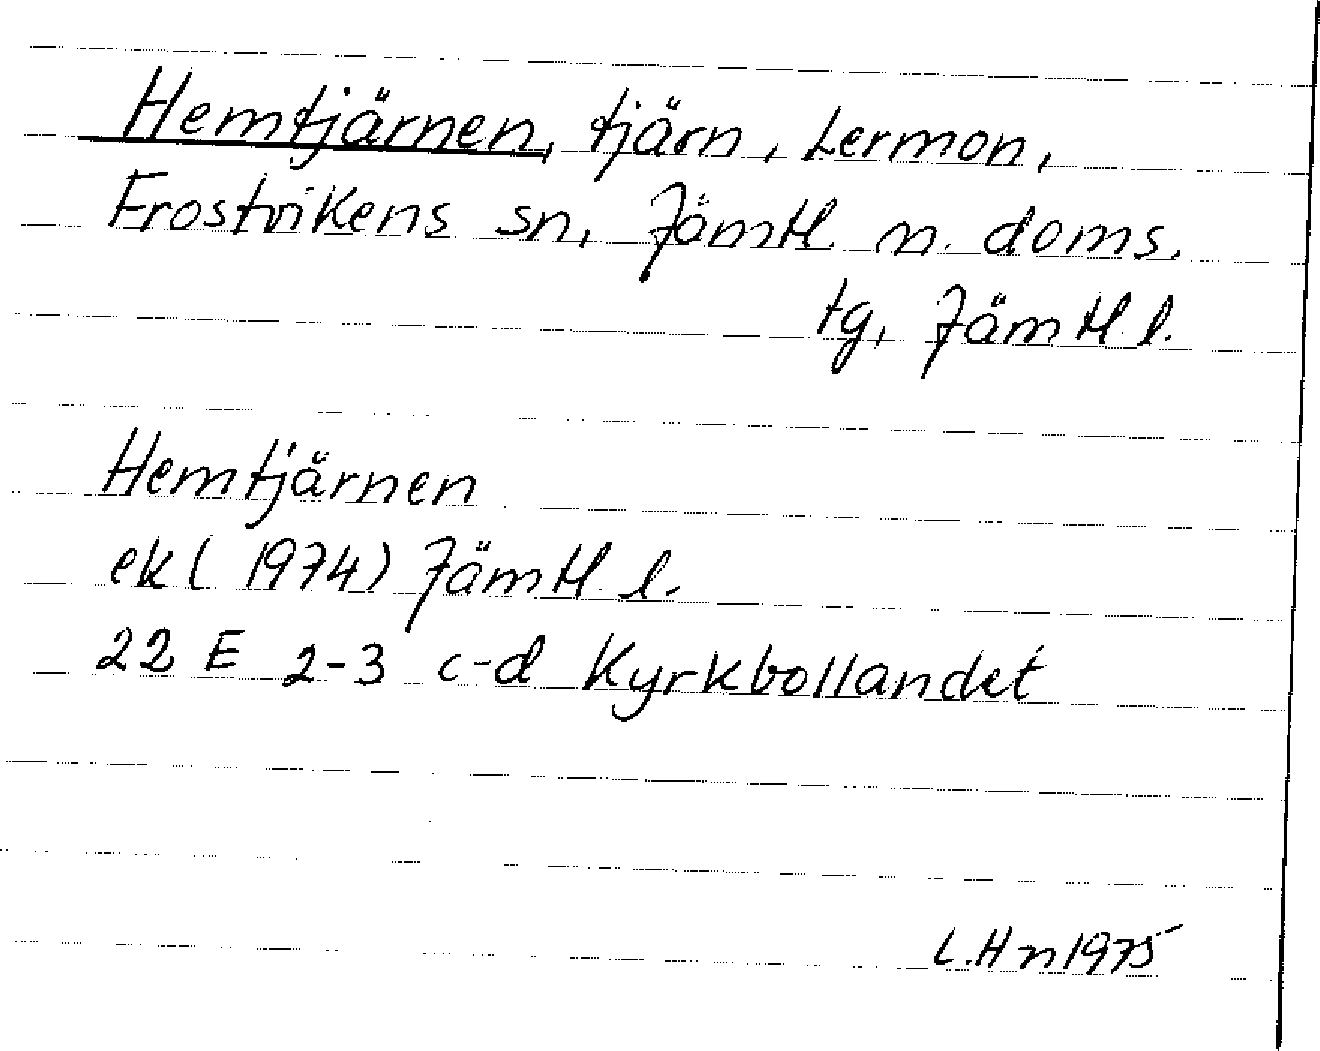 Hemtjärnen, tjärn, Lermon,
Frostvikens sn, Jämtl. n. doms.
tg, Jämtl. l.
Hemtjärnen
ek (1974) Jämtl. l.
22 E 2-3 c-d Kyrkbollandet
L.Hn 1975